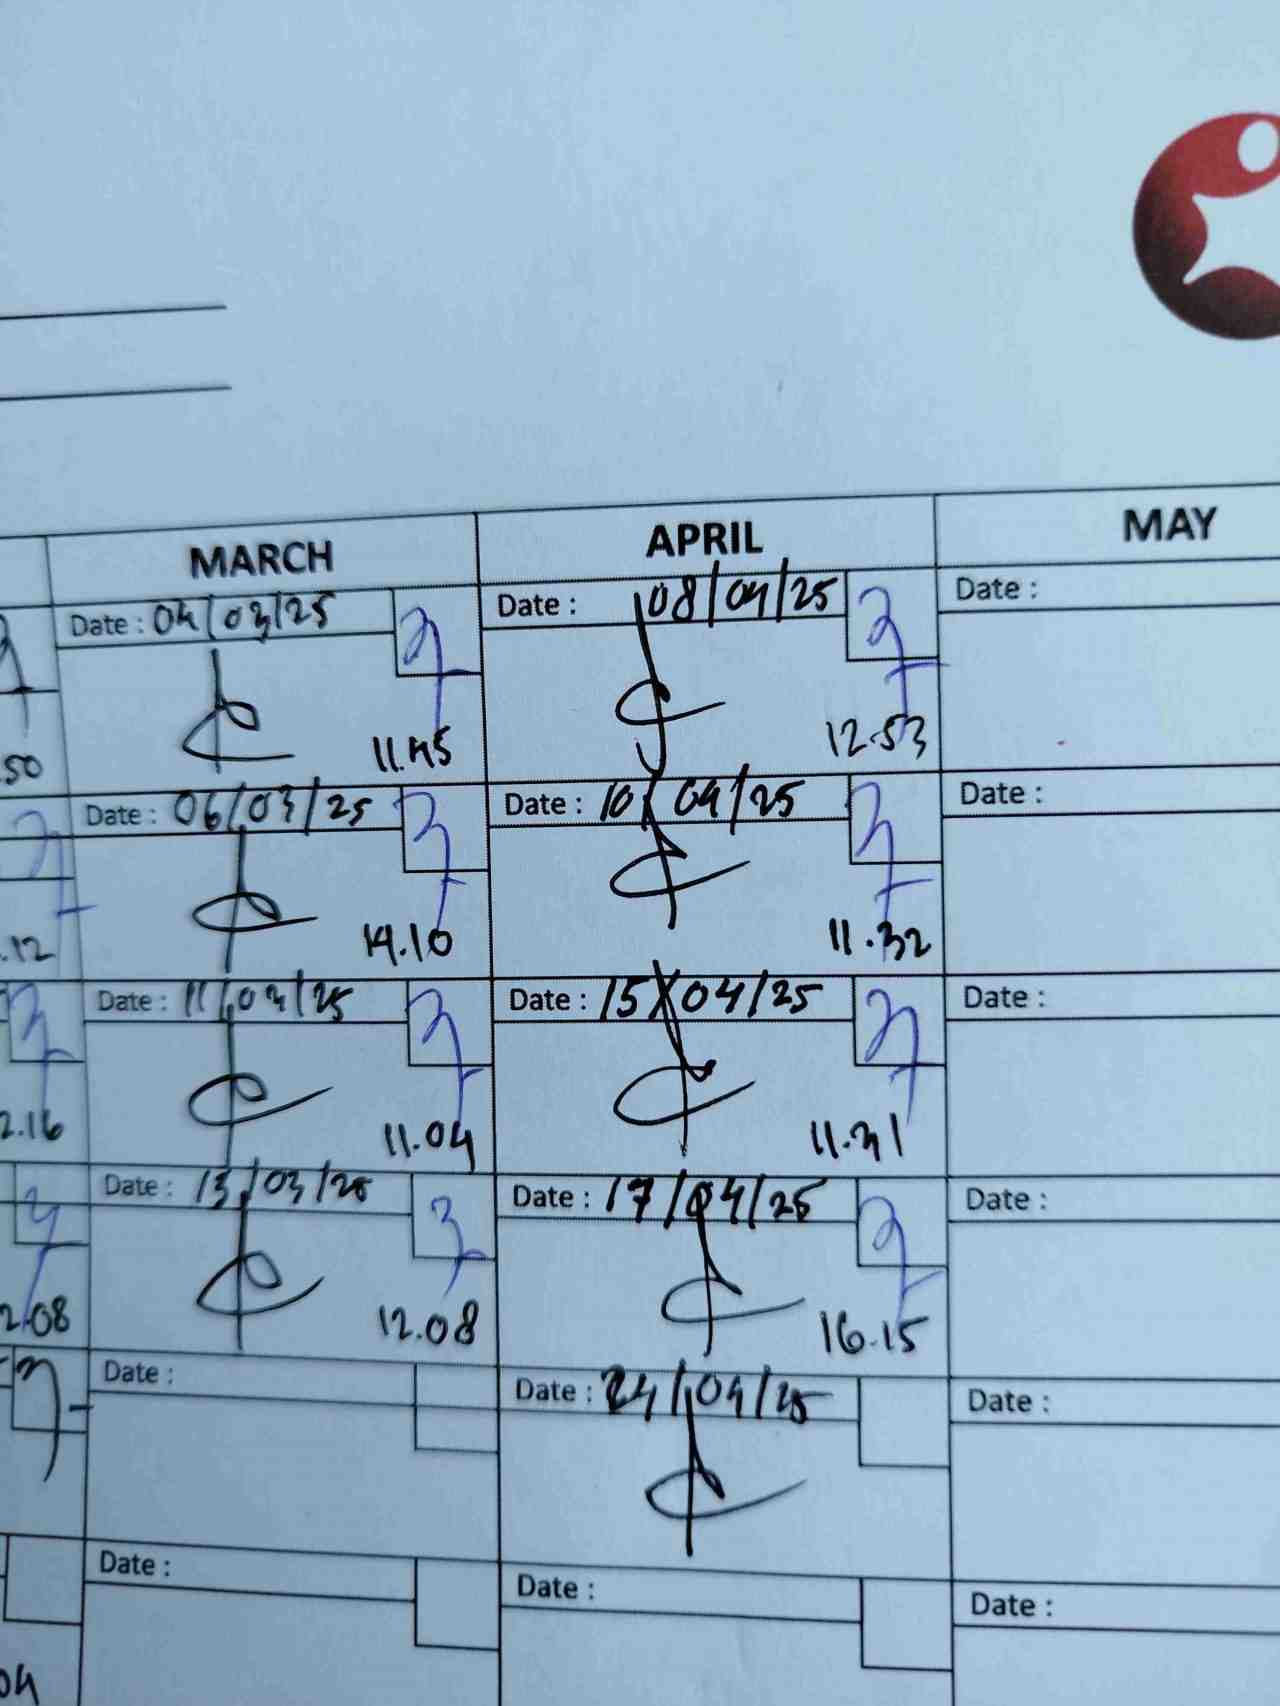 MARCH APRIL MAY
Date : 04/03/25 Date : 08/04/25 Date :
.50 11.45 12.53
Date : 06/03/25 Date : 10/04/25 Date :
.12 14.10 11.32
Date : 11/03/25 Date : 15/04/25 Date :
2.16 11.04 11.31
Date : 13/03/25 Date : 17/04/25 Date :
2.08 12.08 16.15
Date : Date : 24/04/25 Date :
Date : Date : Date :
04